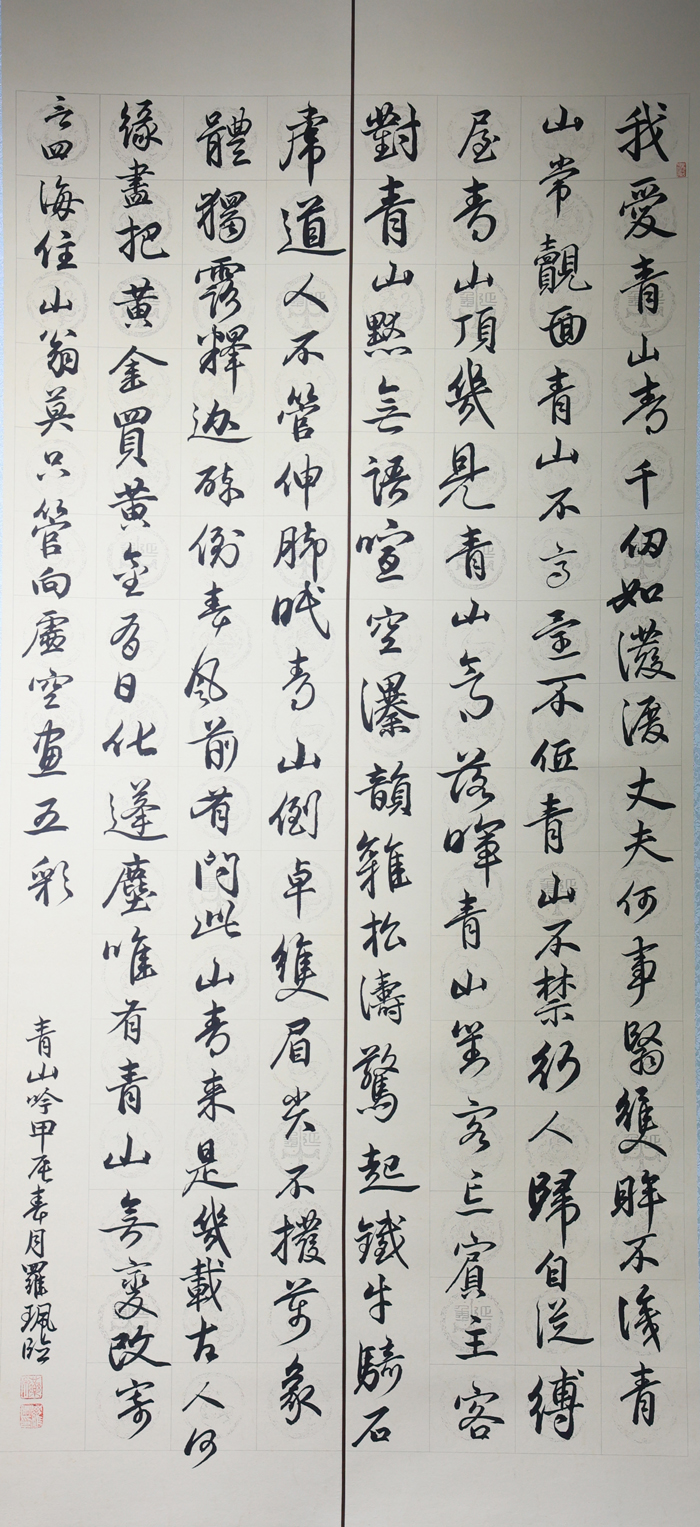 我愛青山青千仞如濃潑丈夫何事翳雙眸不識青
山常覿面青山不高亦不低青山不禁行人歸自從縛
屋青山頂幾見青山無落暉青山對客忘賓主客
對青山默無語喧空瀑韻雜松濤驚起鐵牛騎石
虎道人不管伸腳眠青山倒卓雙眉尖不撥萬象
體獨露釋迦醉倒春風前有問此山青來是幾載古人何
緣盡把黃金買黃金有日化蓬塵唯有青山無變改寄
言四海住山翁莫只管向虛空畫五彩
青山吟甲辰春月羅珮臨